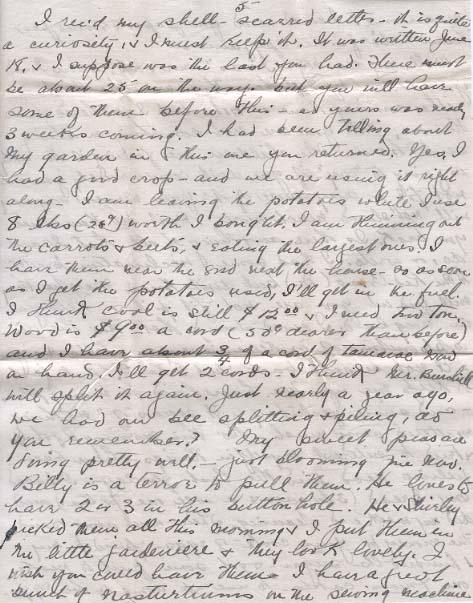 I rec'd my shell-scarred letter - it is quite
a curiosity, & I must keep it. It was written June
18, & I suppose was the last you had. There must
be about 25 on the way. but you will have
some of them before this - as yours was nearly
3 weeks coming. I had been telling about
my garden in this one you returned. Yes, I
had a good crop - and we are using it right
along - I am leaving the potatoes while I use
8 lbs (25¢) worth I bought. I am thinning out
the carrots & beets, & eating the largest ones. I
have them near the end next the house - so as soon
as I get the potatoes used, I'll get in the fuel.
I think coal is still $12.00 & I need two tons.
Wood is $9.00 a cord (50¢ dearer than before)
and I have about 3/4 of a cord of tamarac wood
on hand. I'll get 2 cords - I think Mr.
will split it again. Just nearly a year ago,
we had our bee splitting & piling, do
you remember? My sweet peas are
doing pretty well, - just blooming fine now.
Billy is a terror to pull them. He loves to
have 2 or 3 in his buttonhole. He & Shirley
picked them all this morning & I put them in
the little jardeniere & they look lovely. I
wish you could have them. I have a great
bunch of nasturtiums on the sewing machine